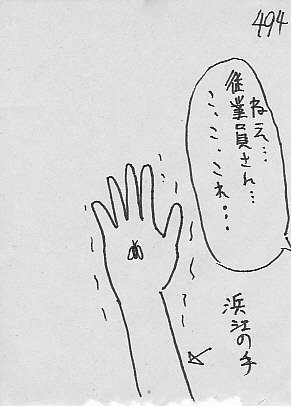 494
ねえ…
従業員され…
こ、こ、これ・・・
浜江の手